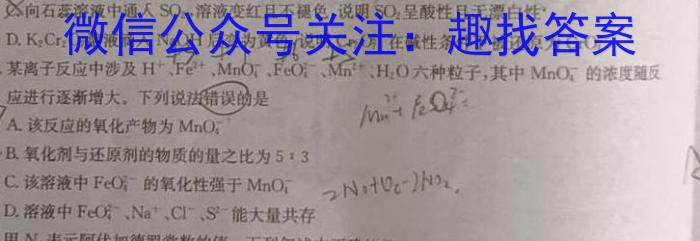 向石蕊溶液中通入SO₂溶液变红且不褪色,说明SO₂呈酸性且无漂白性
D. K₂Cr₂
微信公众号关注:趣找答案
某离子反应中涉及 H⁺、Fe³⁺、MnO₄⁻、FeO₄²⁻、Mn²⁺、H₂O六种粒子,其中 MnO₄⁻ 的浓度随反
应进行逐渐增大。下列说法错误的是
A. 该反应的氧化产物为 MnO₄⁻
B. 氧化剂与还原剂的物质的量之比为 5∶3
C. 该溶液中 FeO₄²⁻ 的氧化性强于 MnO₄⁻
D. 溶液中 FeO₄²⁻、Na⁺、Cl⁻、S²⁻ 能大量共存